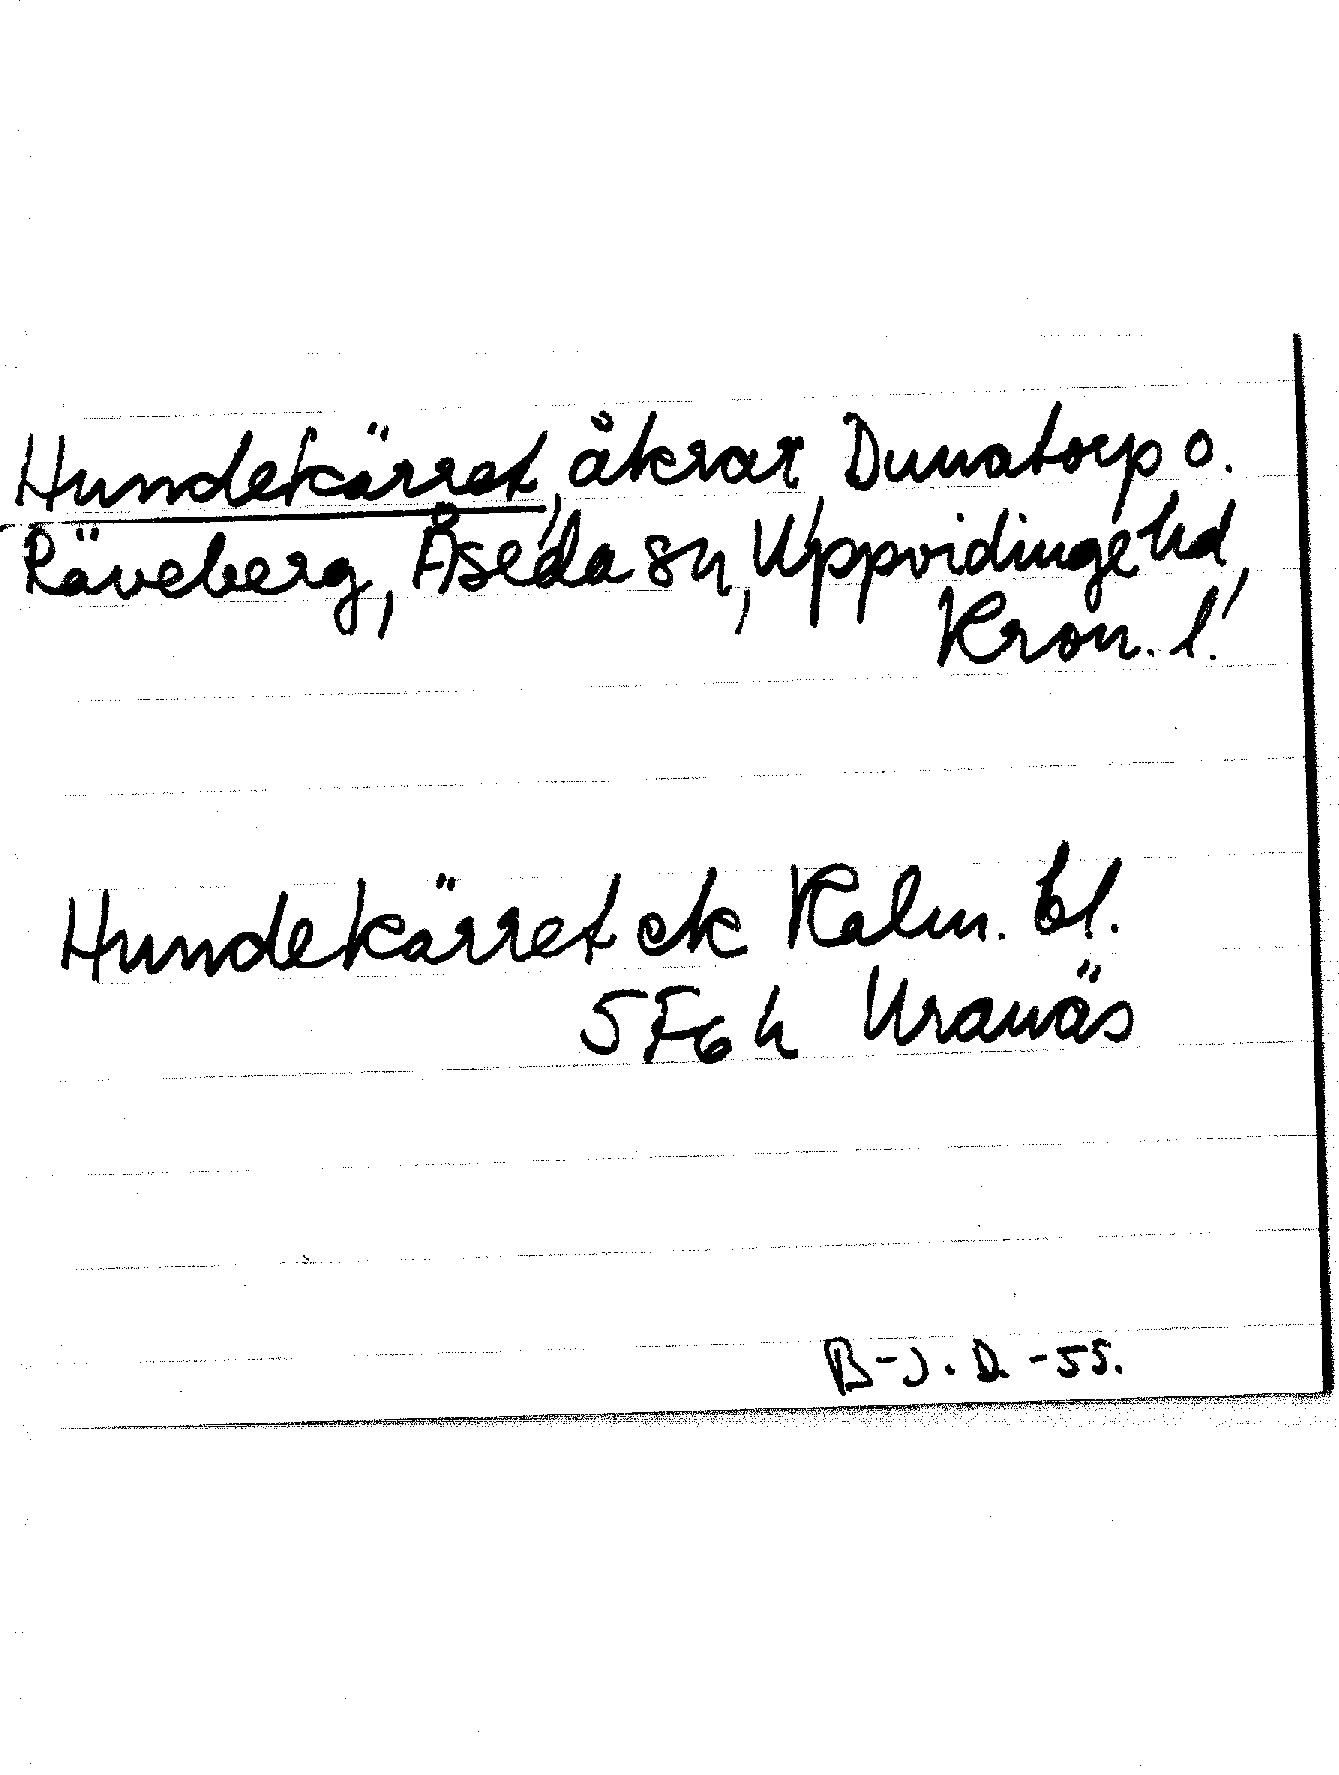 Hundekärret, åkrar, Dunatorp o.
Räveberg, Åseda sn, Uppvidinge hd,
Kron. l.
Hundekärret ek Kalm. bl.
5 F 6 h Uranäs
B-J.D. -55.